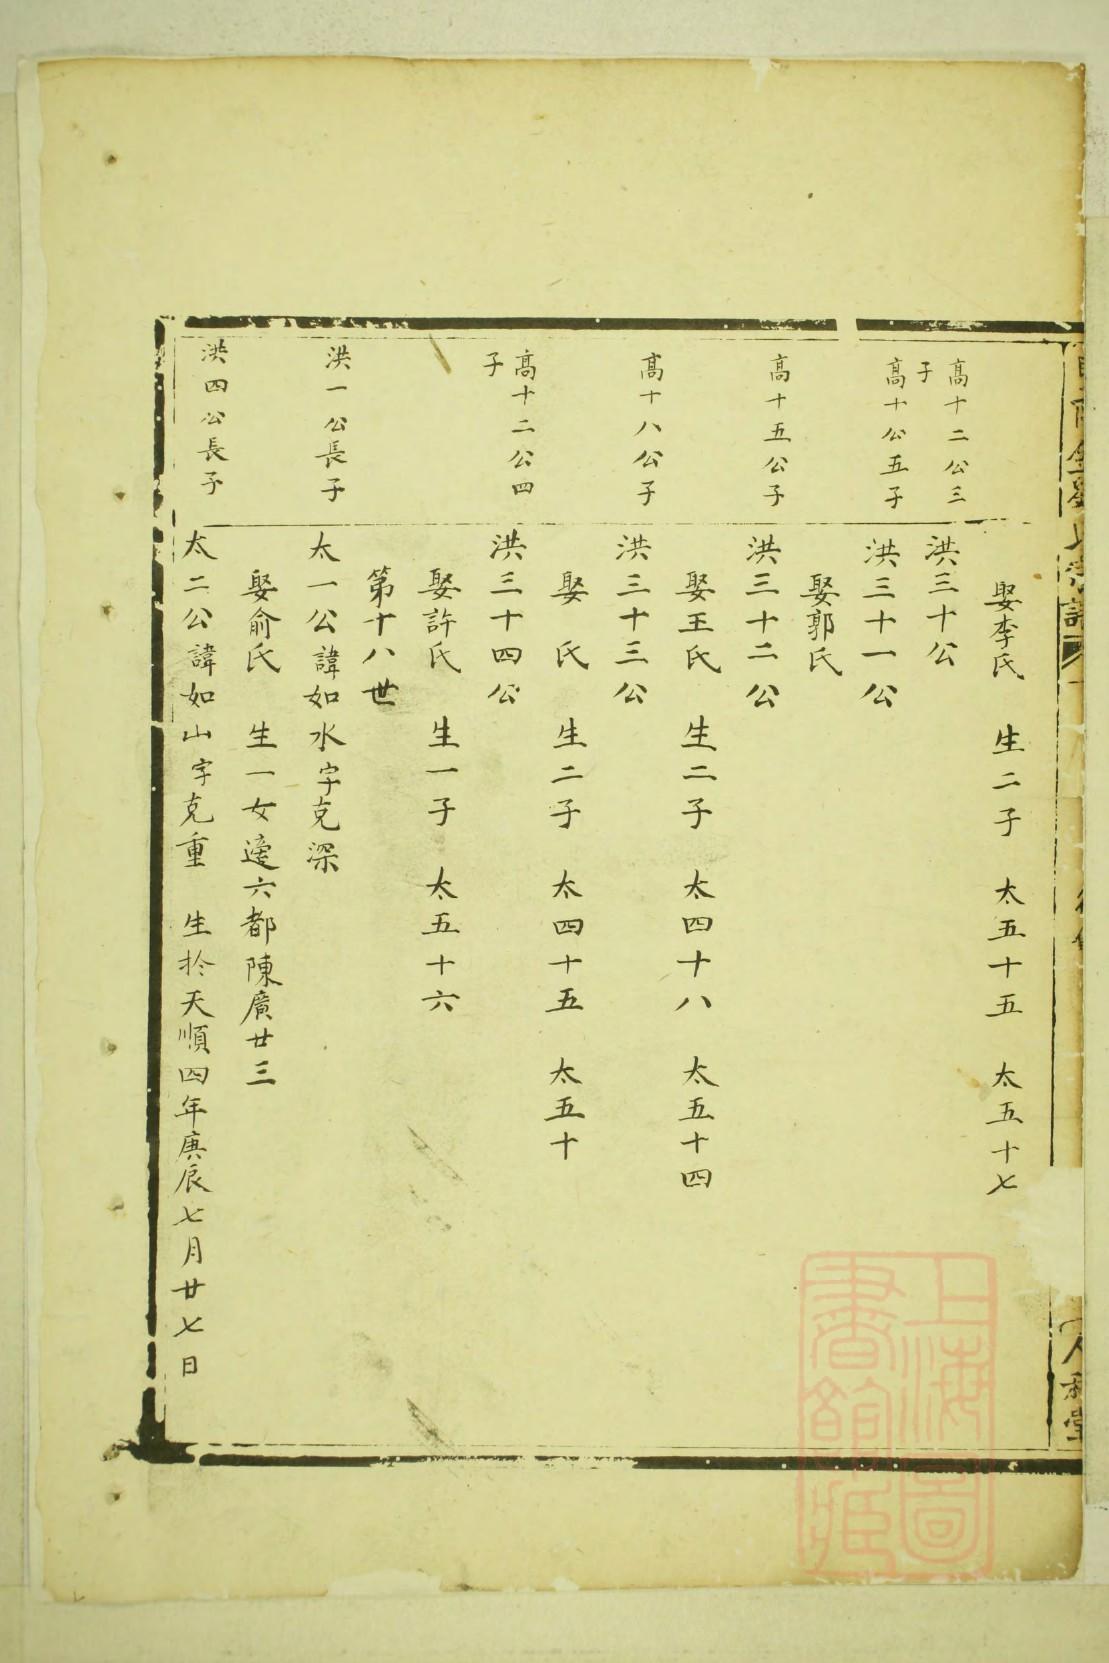 娶李氏 生二子 太五十五 太五十七
高十二公三子
洪三十公
高十公五子
洪三十一公
娶郭氏
高十五公子
洪三十二公
娶王氏 生二子 太四十八 太五十四
高十八公子
洪三十三公
娶 氏 生二子 太四十五 太五十
高十二公四子
洪三十四公
娶許氏 生一子 太五十六
第十八世
洪一公長子
太一公諱如水字克深
娶俞氏 生一女適六都陳廣廿三
洪四公長子
太二公諱如山字克重 生於天順四年庚辰七月廿七日
上海圖書館藏